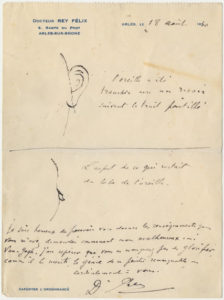 DOCTEUR REY FÉLIX
6, RAMPE DU PONT
ARLES-SUR-RHÔNE
ARLES, LE 18 août 1930
L'oreille a été
tranchée avec un rasoir
suivant le trait pointillé
L'aspect de ce qui restait
du lobe de l'oreille.
Je suis heureux de pouvoir vous donner les renseignements que
vous m'avez demandés concernant mon malheureux ami
Van Gogh. J'ose espérer que vous ne manquerez pas de glorifier
comme il le mérite le génie de ce peintre remarquable
cordialement à vous.
Dr Rey